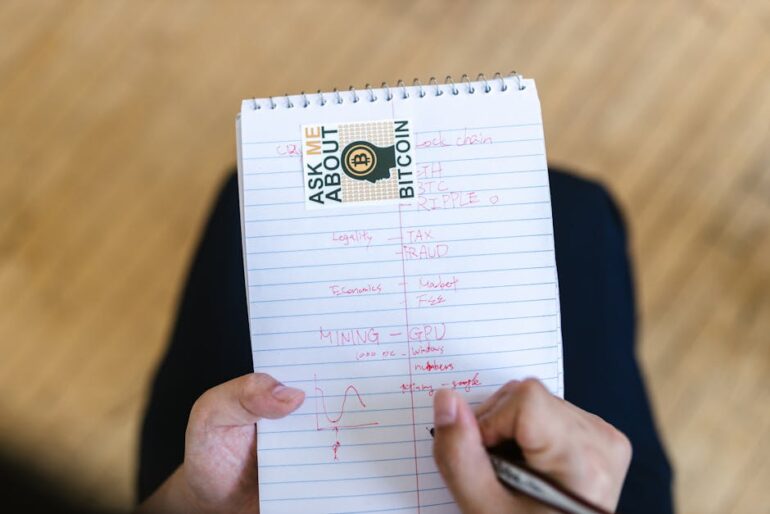 ASK ME
ABOUT
BITCOIN
chain
BTC
RIPPLE
Legality TAX
FRAUD
Economics Market
MINING - GPU
Windows
numbers